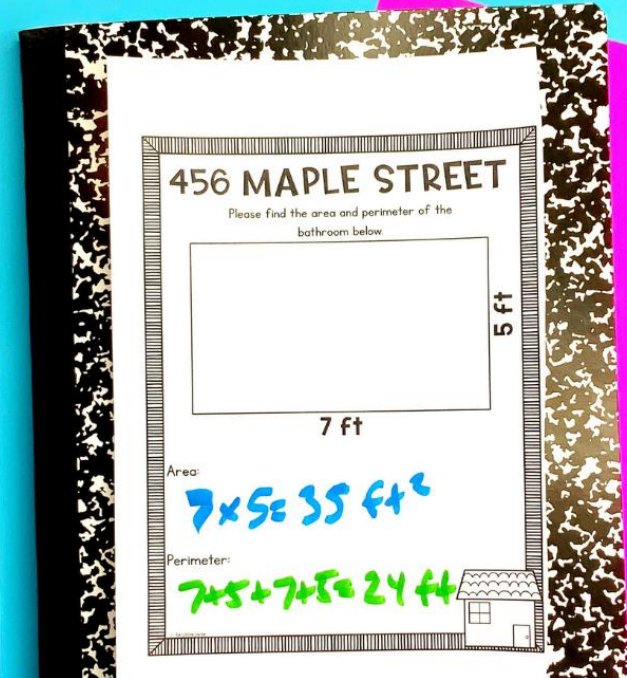 456 MAPLE STREET
Please find the area and perimeter of the
bathroom below.
5 ft
7 ft
Area:
7x5=35 ft²
Perimeter:
7+5+7+5=24 ft